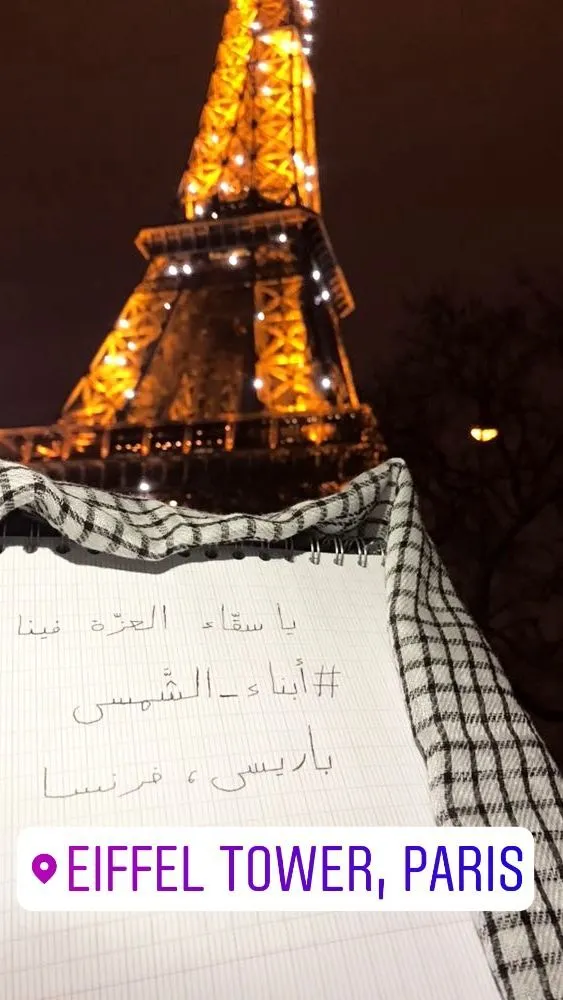 يا سقّاء العزّة فينا
#أبناء_الشَّمس
باريس، فرنسا
EIFFEL TOWER, PARIS